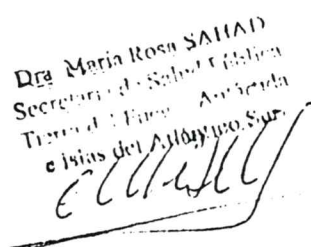 Dra María Rosa SAHAD
Secretaria de Salud Pública
Tierra del Fuego Antártida
e Islas del Atlántico Sur